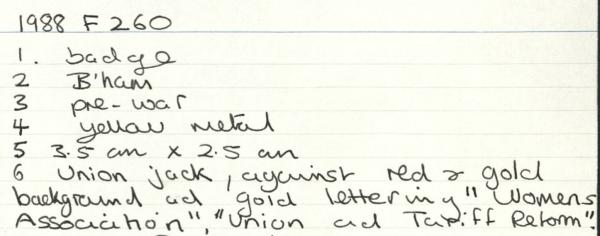 1988 F 260
1. badge
2 B'ham
3 pre-war
4 yellow metal
5 3.5 cm x 2.5 cm
6 Union jack, against red & gold
background ad gold lettering "Womens
Association", "Union ad Tariff Reform".